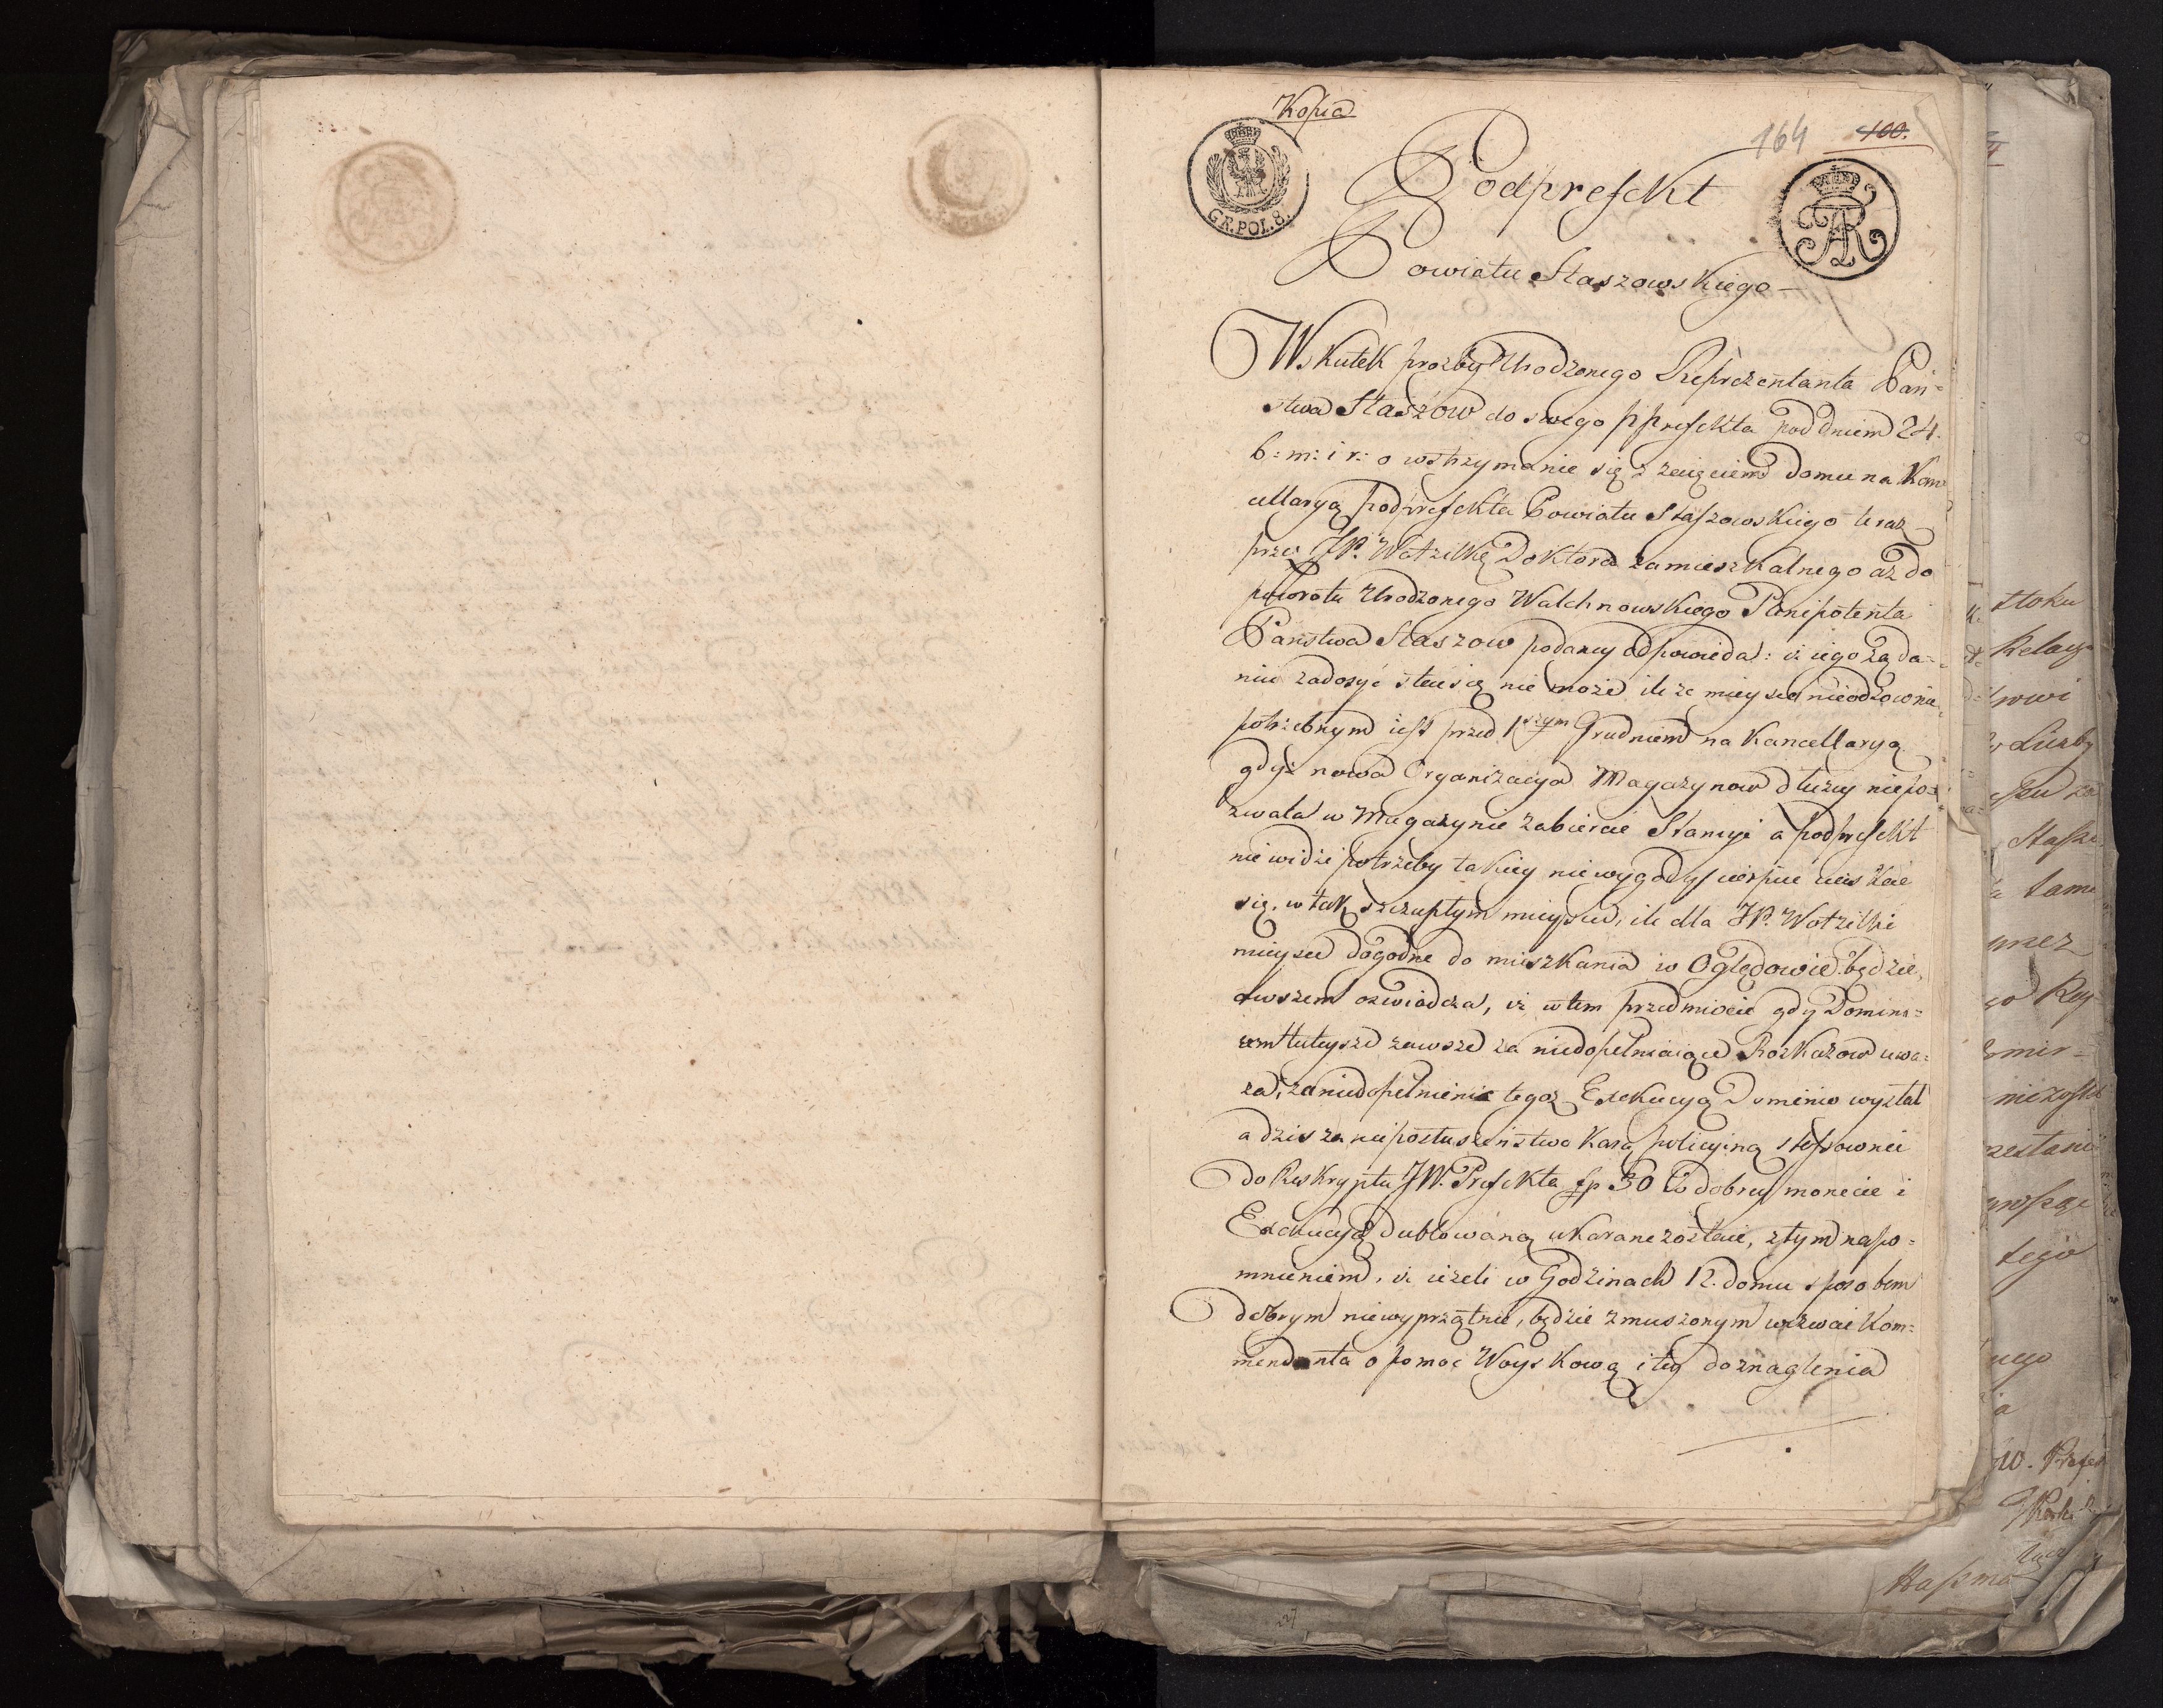 Kopia
164 100.
GR.POL.8.
Podprefekt
Powiatu Staszowskiego
Wskutek prozby Urodzonego Reprezentanta Pań=
stwa Staszow do swego pprefekta pod dniem 24.
b: m: i r: o wstrzymanie się z zaięciem domu na Kan
cellaryą podprefekta Powiatu Staszowskiego teraz
przez JP. Wotzilkę Doktora zamieszkalnego aż do
powrotu Urodzonego Walchnowskiego Plenipotenta
Państwa Staszow podaney odpowieda: iż iego żąda=
niu zadosyć stać się nie może ile że mieysca nieodzownie
potrzebnym iest przed 1szym Grudniem na Kancellaryą
gdyż nowa Organizacya Magazynow dłużey niepo=
zwala w Magazynie zabierać Stancyi a podprefekt
nie widzi potrzeby takiey niewygody cierpieć ciskać
się, w tak szczupłym mieyscu, ile dla JP. Wotzilki
mieysce dogodne do mieszkania w Oględowie będzie,
owszem ozwiadcza, iż w tem przedmiocie gdy Domini=
um tuteysze zawsze za niedopełniaiące Rozkazow uwa=
ża, za niedopełnienie tegoż Exekucyą Dominio wysłał
a dzis za nieposłuszeństwo karą policyiną stosownei
do Reskryptu JW. Prefekta fp 30 w dobrey monecie i
Exekucyą dublowaną ukarane zostaie, z tym napo=
mnieniem, iż ieżeli w Godzinach 12. domu sposobem
dobrym niewyprzątnie, będzie zmuszonym wezwać Kom=
mendanta o pomoc Woyskową i tey do znaglenia
ttoku
Relacy
rowi
w Liczby
Staszo
tam
tego
nego